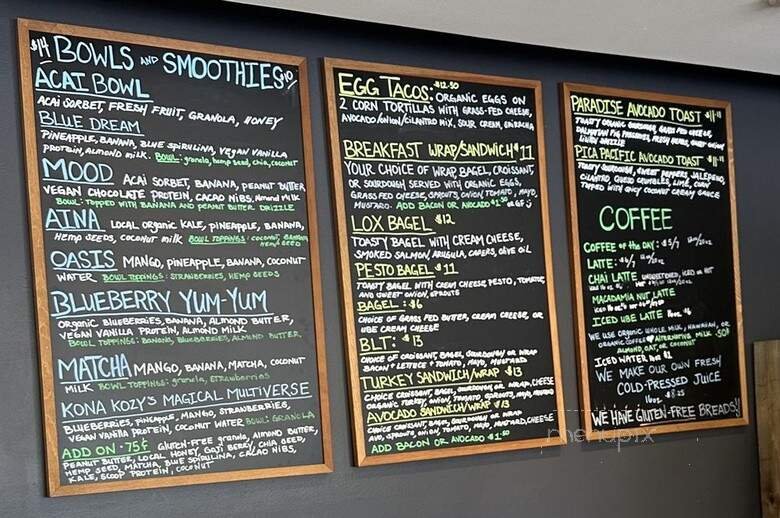 $14 BOWLS AND SMOOTHIES $10
ACAI BOWL
ACAI SORBET, FRESH FRUIT, GRANOLA, HONEY
BLUE DREAM
PINEAPPLE, BANANA, BLUE SPIRULINA, VEGAN VANILLA
PROTEIN, ALMOND MILK. BOWL: granola, hemp seed, chia, coconut
MOOD ACAI SORBET, BANANA, PEANUT BUTTER,
VEGAN CHOCOLATE PROTEIN, CACAO NIBS, Almond Milk
BOWL: TOPPED WITH BANANA AND PEANUT BUTTER DRIZZLE
AINA LOCAL ORGANIC KALE, PINEAPPLE, BANANA,
HEMP SEEDS, COCONUT MILK BOWL TOPPINGS: COCONUT, BANANA
HEMP SEED
OASIS MANGO, PINEAPPLE, BANANA, COCONUT
WATER BOWL TOPPINGS: STRAWBERRIES, HEMP SEEDS
BLUEBERRY YUM-YUM
ORGANIC BLUEBERRIES, BANANA, ALMOND BUTTER,
VEGAN VANILLA PROTEIN, ALMOND MILK
BOWL TOPPINGS: BANANA, BLUEBERRIES, ALMOND BUTTER
MATCHA MANGO, BANANA, MATCHA, COCONUT
MILK BOWL TOPPINGS: granola, strawberries
KONA KOZY'S MAGICAL MULTIVERSE
BLUEBERRIES, PINEAPPLE, MANGO, STRAWBERRIES,
VEGAN VANILLA PROTEIN, COCONUT WATER BOWL: GRANOLA
ADD ON .75¢ GLUTEN-FREE granola, ALMOND BUTTER,
PEANUT BUTTER, LOCAL HONEY, GOJI BERRY, CHIA SEED,
HEMP SEED, MATCHA, BLUE SPIRULINA, CACAO NIBS,
KALE, SCOOP PROTEIN, COCONUT
EGG TACOS: $12.50 ORGANIC EGGS ON
2 CORN TORTILLAS WITH GRASS-FED CHEESE,
AVOCADO/ONION/CILANTRO MIX, SOUR CREAM, SRIRACHA
BREAKFAST WRAP/SANDWICH $11
YOUR CHOICE OF WRAP, BAGEL, CROISSANT,
OR SOURDOUGH SERVED WITH ORGANIC EGGS,
GRASS FED CHEESE, SPROUTS, ONION, TOMATO, MAYO,
MUSTARD. ADD BACON OR AVOCADO $1.50
LOX BAGEL $12
TOASTY BAGEL WITH CREAM CHEESE,
SMOKED SALMON, ARUGULA, CAPERS, OLIVE OIL
PESTO BAGEL $11
TOASTY BAGEL WITH CREAM CHEESE, PESTO, TOMATOE,
AND SWEET ONION, SPROUTS
BAGEL: $6
CHOICE OF GRASS FED BUTTER, CREAM CHEESE, OR
UBE CREAM CHEESE
BLT: $13
CHOICE OF CROISSANT, BAGEL, SOURDOUGH OR WRAP
BACON + LETTUCE + TOMATO, MAYO, MUSTARD
TURKEY SANDWICH/WRAP $13
CHOICE CROISSANT, BAGEL, SOURDOUGH, OR WRAP, CHEESE
ORGANIC TURKEY, ONION, TOMATO, SPROUTS, MAYO, MUSTARD
AVOCADO SANDWICH/WRAP $13
CHOICE CROISSANT, BAGEL, SOURDOUGH OR WRAP
AVO, SPROUTS, ONION, TOMATO, MAYO, MUSTARD, CHEESE
ADD BACON OR AVOCADO $1.50
PARADISE AVOCADO TOAST
TOASTY ORGANIC SOURDOUGH, GRASS FED CHEESE,
PICA PACIFIC AVOCADO TOAST
TOASTY SOURDOUGH, SWEET PEPPERS, JALEPEÑO,
CILANTRO, QUESO CRUMBLES, LIME, CORN
TOPPED WITH SPICY COCONUT CREAM SAUCE
COFFEE
COFFEE OF THE DAY: $5/7
LATTE:
CHAI LATTE UNSWEETENED, ICED OR HOT
MACADAMIA NUT LATTE
ICED UBE LATTE
WE USE ORGANIC WHOLE MILK, HAWAIIAN, OR
ORGANIC COFFEE ALTERNATIVE MILK .50¢
ALMOND, OAT, OR COCONUT
ICED WATER $1
WE MAKE OUR OWN FRESH
COLD-PRESSED JUICE
WE HAVE GLUTEN-FREE BREADS!!
menupix